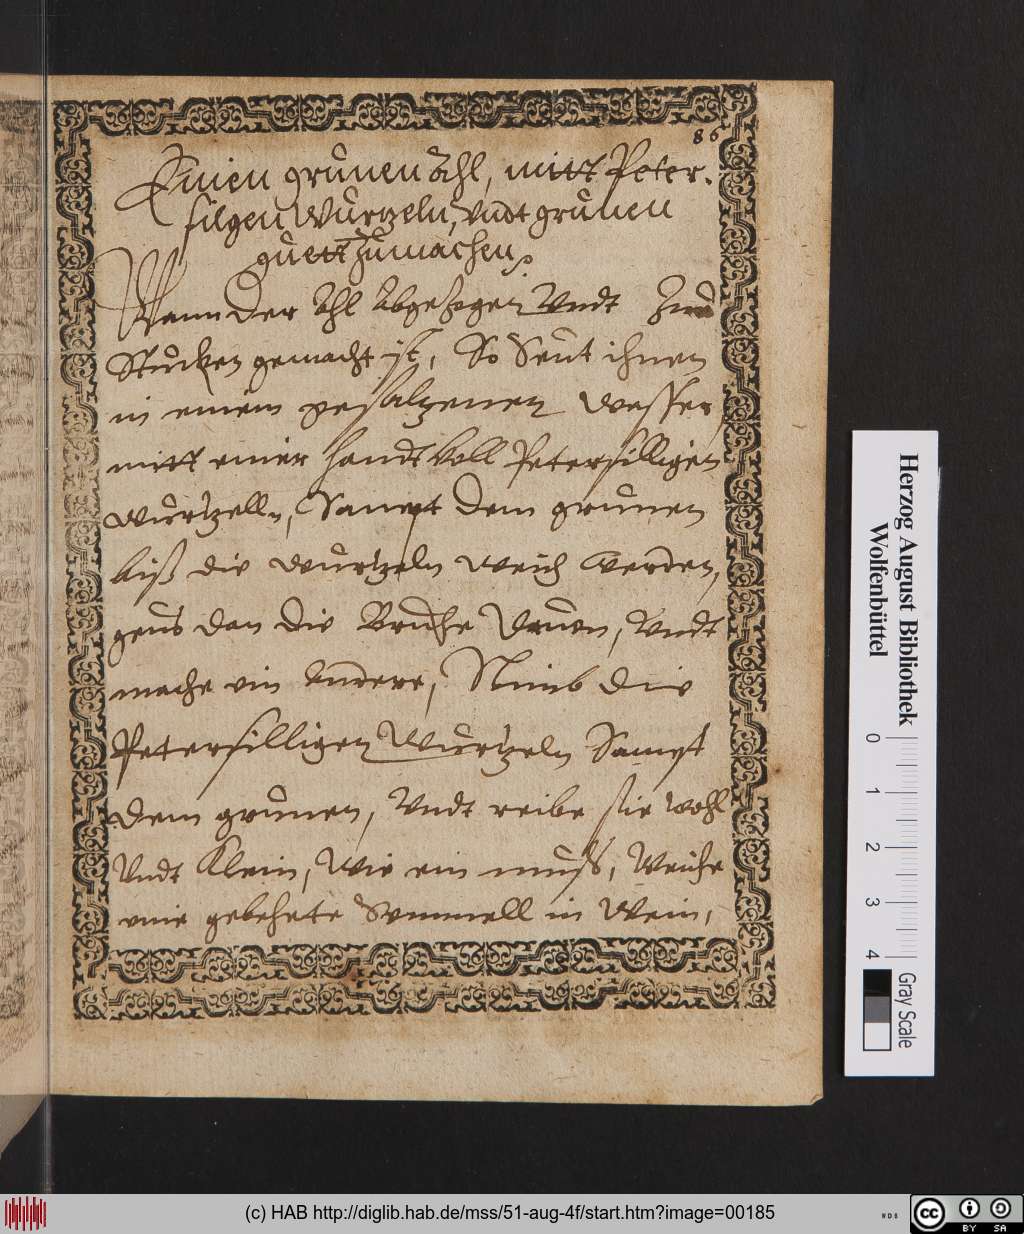 86
Einen grunen Ahl, mitt Peter.
silgen Wurtzeln, vndt grunen
guett zumachen.
Wann der Ahl Abgezogen Vndt Zu
Stucken gemacht ist, So Seut ihnen
in einem gesaltzenen Wasser
mitt einer handt Voll Petersilligen
wurtzelln, Sampt dem grunen
biß die wurtzeln weich werden,
geus dan die Bruhe Davon, Vndt
mache ein Andere, Nimb die
Petersilligen Wurtzeln Sampt
dem grunen, Vndt reibe sie wohl
Vndt Klein, Wie ein muß, Weiche
eine gebehete Semmell in Wein,
Herzog August Bibliothek
Wolfenbüttel
0 1 2 3 4
Gray Scale
(c) HAB http://diglib.hab.de/mss/51-aug-4f/start.htm?image=00185
WDB
cc BY SA